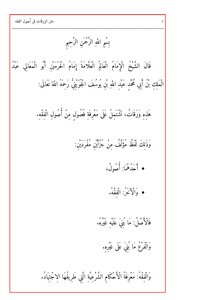 متن الورقات في أصول الفقه
بِسْمِ اللهِ الرَّحْمٰنِ الرَّحِيْمِ
قَالَ الشَّيْخُ الإِمَامُ العَالِمُ العَلَّامَةُ إِمَامُ الحَرَمَيْنِ أَبُو المَعَالِي عَبْدُ
المَلِكِ بْنُ أَبِي مُحَمَّدٍ عَبْدِ اللهِ بْنِ يُوسُفَ الجُوَيْنِيُّ رَحِمَهُ اللهُ تَعَالَى:
هَذِهِ وَرَقَاتٌ، تَشْتَمِلُ عَلَى مَعْرِفَةِ فُصُولٍ مِنْ أُصُولِ الفِقْهِ.
وَذَلِكَ لَفْظٌ مُؤَلَّفٌ مِنْ جُزْأَيْنِ مُفْرَدَيْنِ:
• أَحَدُهُمَا: أُصُولٌ،
• وَالآخَرُ: الفِقْهُ.
فَالأَصْلُ: مَا بُنِيَ عَلَيْهِ غَيْرُهُ.
وَالفَرْعُ: مَا يُبْنَى عَلَى غَيْرِهِ.
وَالفِقْهُ: مَعْرِفَةُ الأَحْكَامِ الشَّرْعِيَّةِ الَّتِي طَرِيقُهَا الاِجْتِهَادُ.